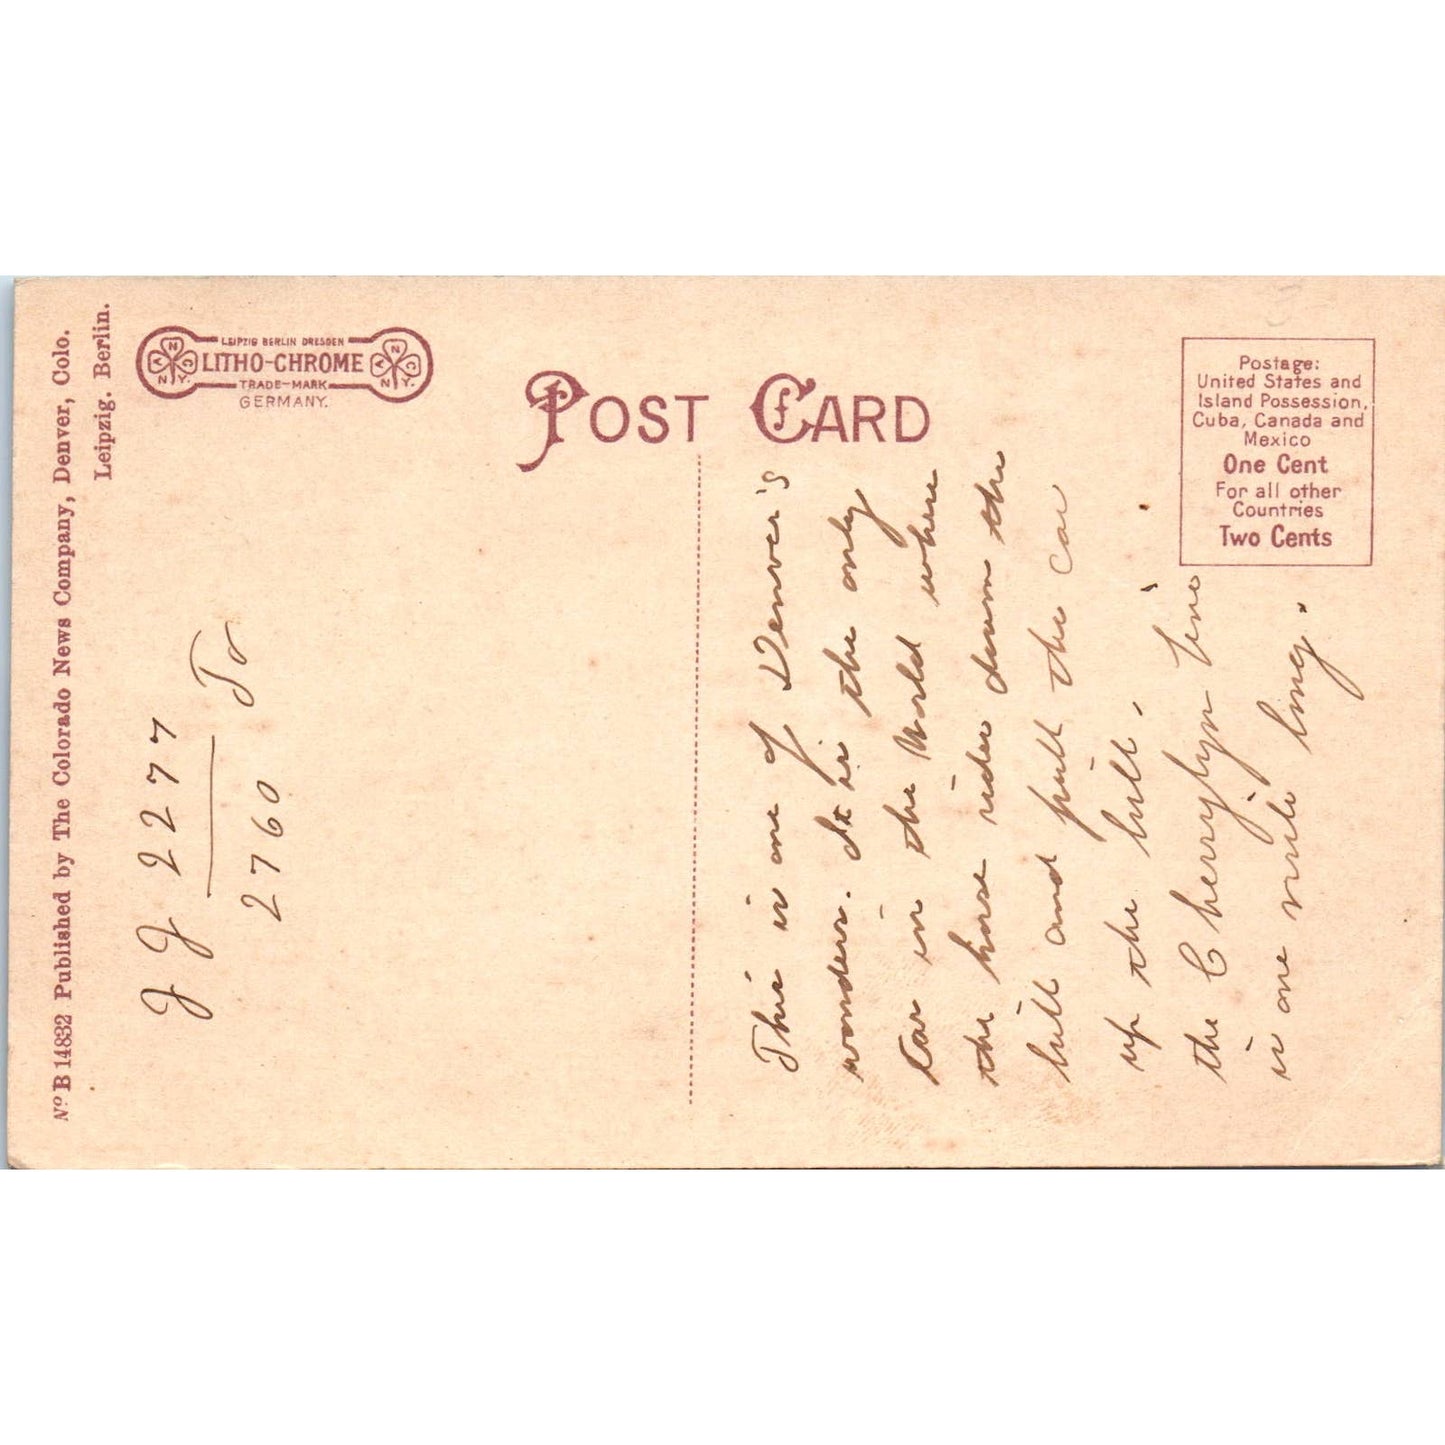 Nº B 14832 Published by The Colorado News Company, Denver, Colo.
Leipzig. Berlin.
LEIPZIG BERLIN DRESDEN
LITHO-CHROME
TRADE-MARK
GERMANY.
A N C
N.Y.
A N C
N.Y.
POST CARD
Postage:
United States and
Island Possession,
Cuba, Canada and
Mexico
One Cent
For all other
Countries
Two Cents
J J 2277
2760 Tr
This is one of Denver's
wonders. It is the only
Car in the World where
the horse rides down the
hill and pull the car
up the hill.
the Cherrylyn Line
is one mile long.